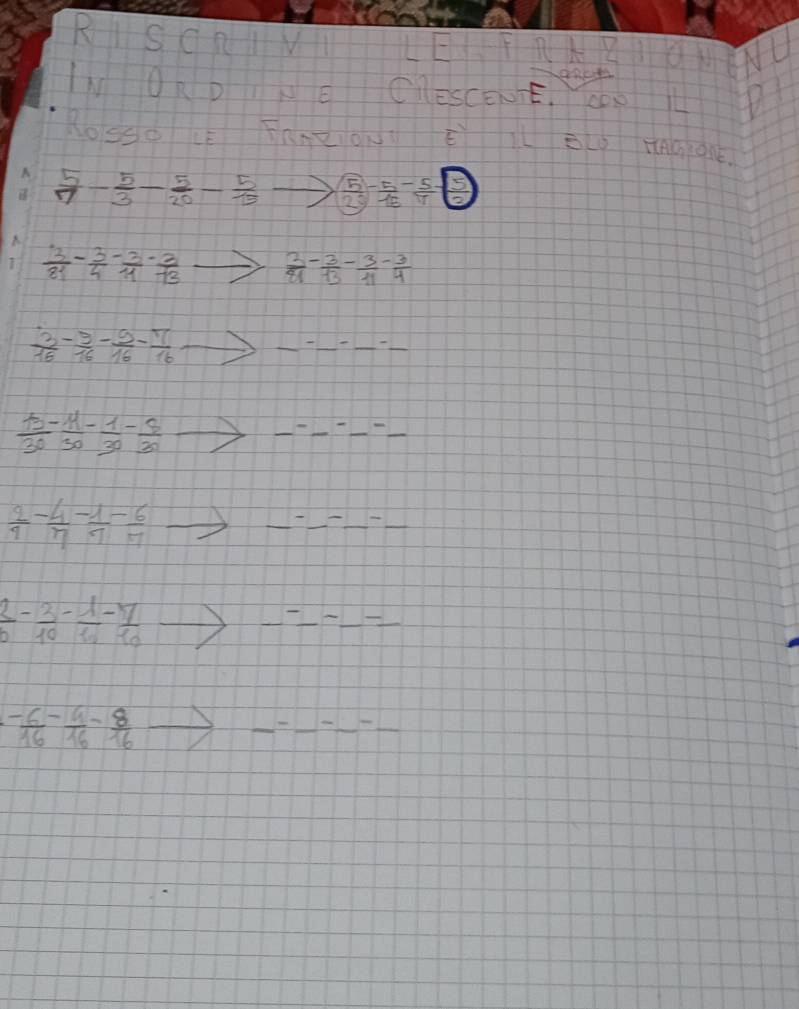 RISCRIVI LE FRAZIONI NU
IN ORDINE CRESCENTE. CON IL
ROSSO LE FRAZIONI E IL BLU MAGGIORE.
5/7 - 5/3 - 5/20 - 5/15 → 5/20 - 5/15 - 5/7 - 5/3
3/21 - 3/4 - 3/11 - 3/13 → 3/21 - 3/13 - 3/11 - 3/4
3/16 - 5/16 - 9/16 - 7/16 → _ - _ - _ - _
13/30 - 11/30 - 1/30 - 8/30 → _ - _ - _ - _
2/7 - 4/7 - 1/7 - 6/7 → _ - _ - _ - _
3/10 - 1/10 - 7/10 → _ - _ - _ - _
- 6/16 - 9/16 - 8/16 → _ - _ - _ - _